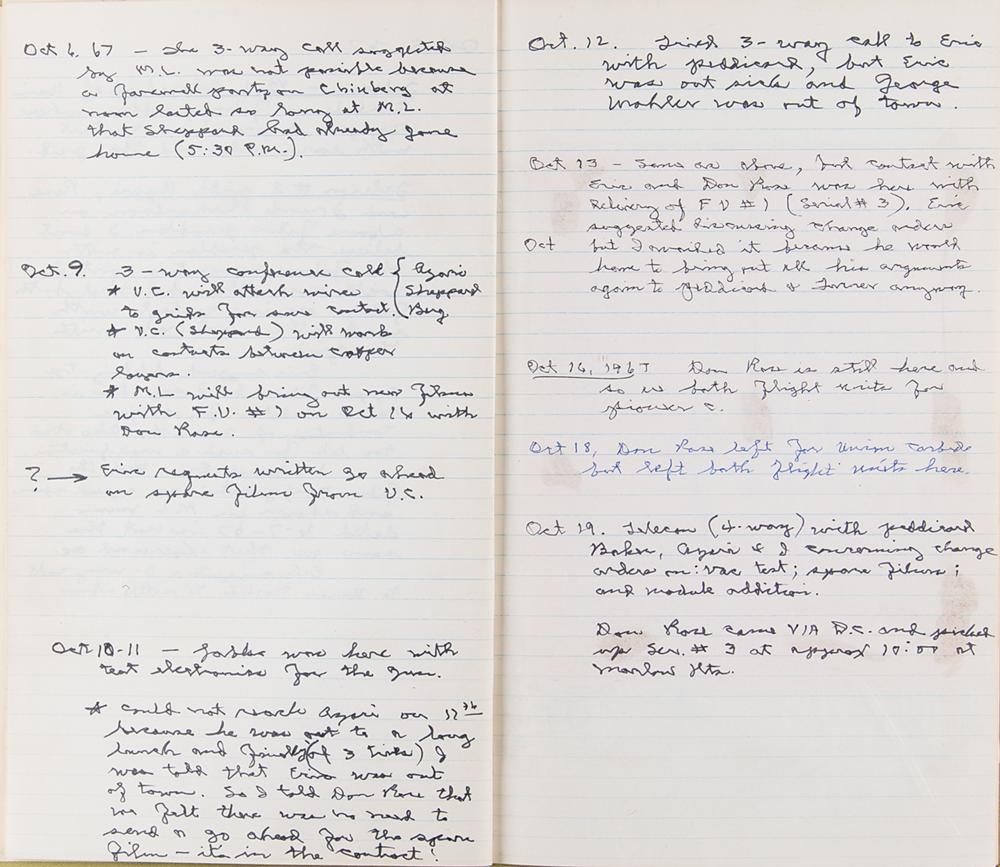 Oct 6, 67 — The 3-way call suggested
by M.L. was not possible because
a farewell party on Chinberg at
noon lasted so long at M.L.
that Sheppard had already gone
home (5:30 P.M.).
Oct. 9. 3-way conference call { Ayari
* U.C. will attach wire Sheppard
to grids for sure contact. Berg
* U.C. (Sheppard) will work
on contacts between copper
layers.
* M.L will bring out new films
with F.U. #1 on Oct 16 with
Don Rose.
? → Eric requests written go ahead
on spare films from U.C.
Oct 10-11 — was here with
test electronics for the
* Could not reach Ayari on 12th
because he was out to a long
lunch and finally (of 3 times) I
was told that Eric was out
of town. So I told Don Rose that
we felt there was no need to
send a go ahead for the spare
film — its in the contract!
Oct. 12. Tried 3-way call to Eric
with Peddicord, but Eric
was out sick and George
Mahler was out of town.
Oct 13 — Same as above, but contact with
Eric and Don Rose was here with
Delivery of F U #1 (Serial #3). Eric
suggested discussing change orders
Oct but I avoided it because he would
have to bring out all his arguments
again to Peddicord & anyway.
Oct 16, 1967 Don Rose is still here and
so is both flight units for
Pioneer C.
Oct 18, Don Rose left for Union Carbide
but left both flight units here.
Oct 19. Telecon (4-way) with Peddicord
Baker, Ayari & I concerning change
orders on: Vac test; spare films;
and module addition.
Don Rose came VIA D.C. and picked
up Ser. # 3 at approx 10:00 at
Marlow Hts.